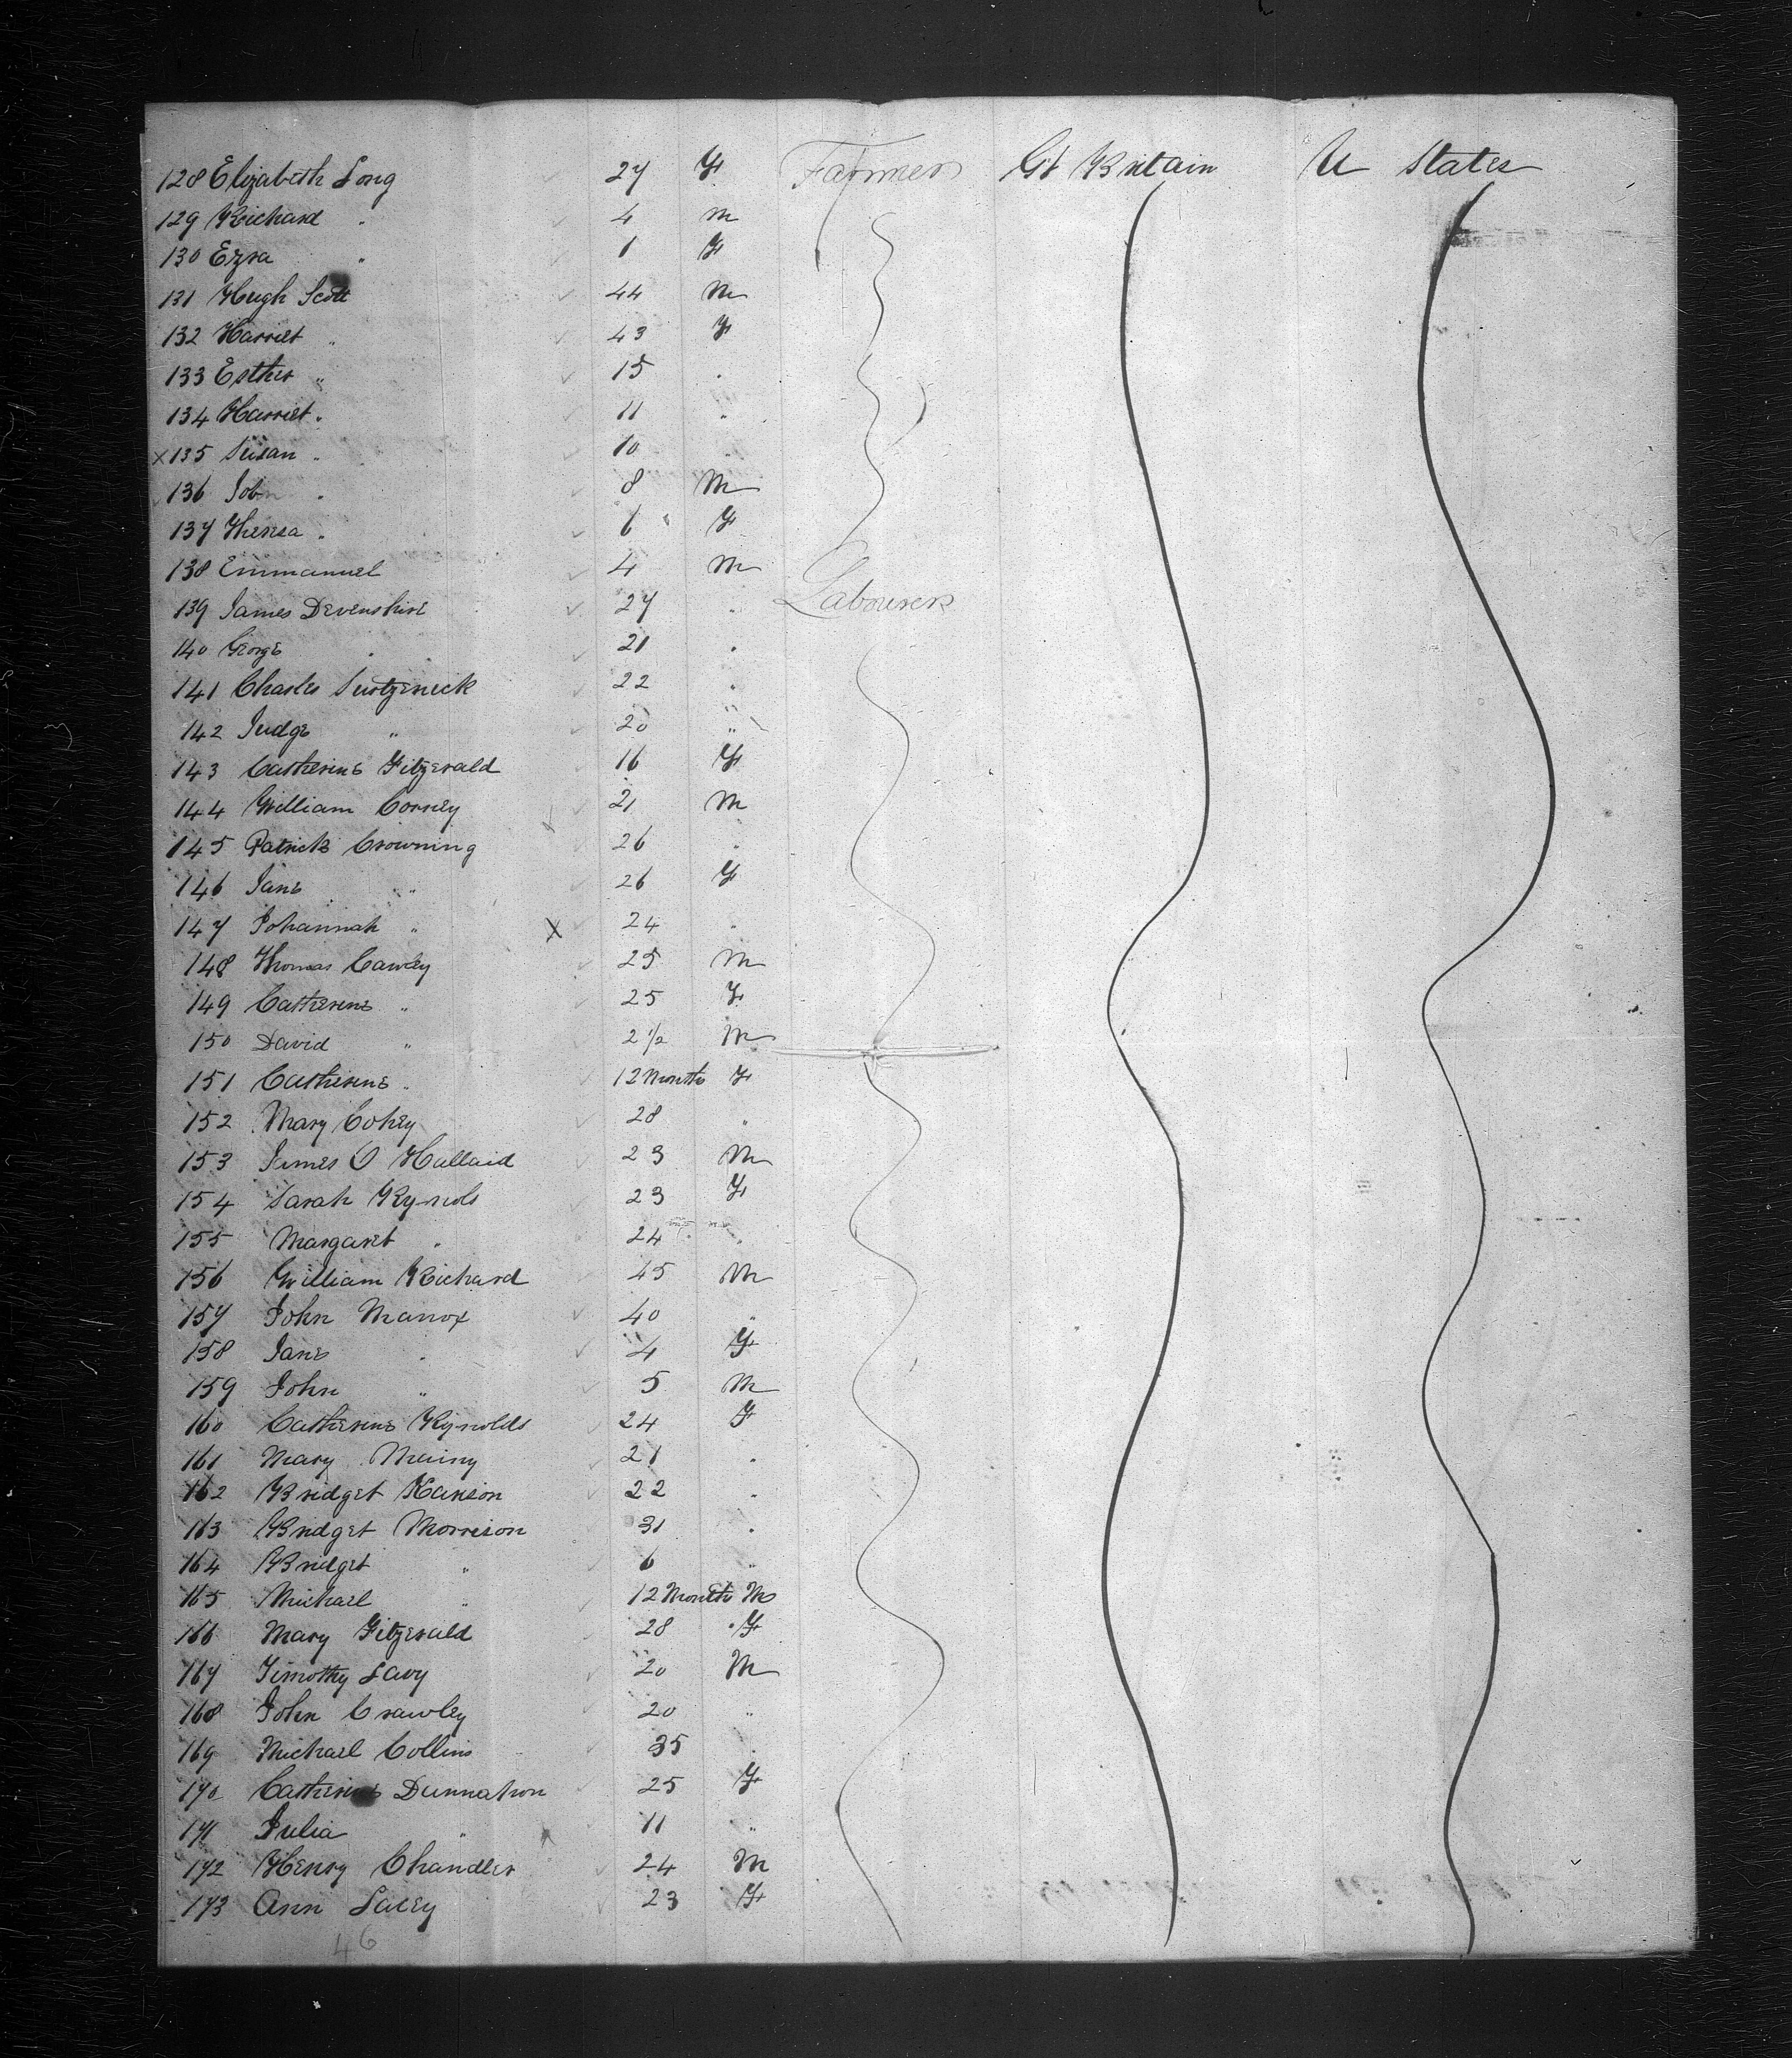 128 Elizabeth Long 27 F Farmer Gt Britain U States
129 Richard " 4 m
130 Ezra " 1 F
131 Hugh Scott 44 m
132 Harriet " 43 F
133 Esther " 15 "
134 Harriet " 11 "
X 135 Susan " 10 "
136 John " 8 M
137 Theresa " 6 F
138 Emmanuel 4 m
139 James Devenshire 27 " Labourers
140 George " 21 "
141 Charles 22 "
142 Judge " 20 "
143 Catherine Fitzgerald 16 F
144 William Correy 21 M
145 Patrick Crowning 26 "
146 Jane " 26 F
147 Johannah " X 24 "
148 Thomas Cawley 25 M
149 Catherine " 25 F
150 David " 2 1/2 M
151 Catherine " 12 Months F
152 Mary Cohey 28 "
153 James O Hallaid 23 M
154 Sarah Rynols 23 F
155 Margaret " 24 "
156 William Richard 45 M
157 John Manox 40 "
158 Jane " 4 F
159 John " 5 M
160 Catherine Rynolds 24 F
161 Mary 21 "
162 Bridget Hanson 22 "
163 Bridget Morrison 31 "
164 Bridget " 6 "
165 Michael " 12 Months M
166 Mary Fitzgerald 28 F
167 Timothy Lavy 20 M
168 John Crawley 20 "
169 Michael Collins 35 "
170 Catherine Dunnahon 25 F
171 Julia " 11 "
172 Henry Chandler 24 M
173 Ann Lacey 23 F
46